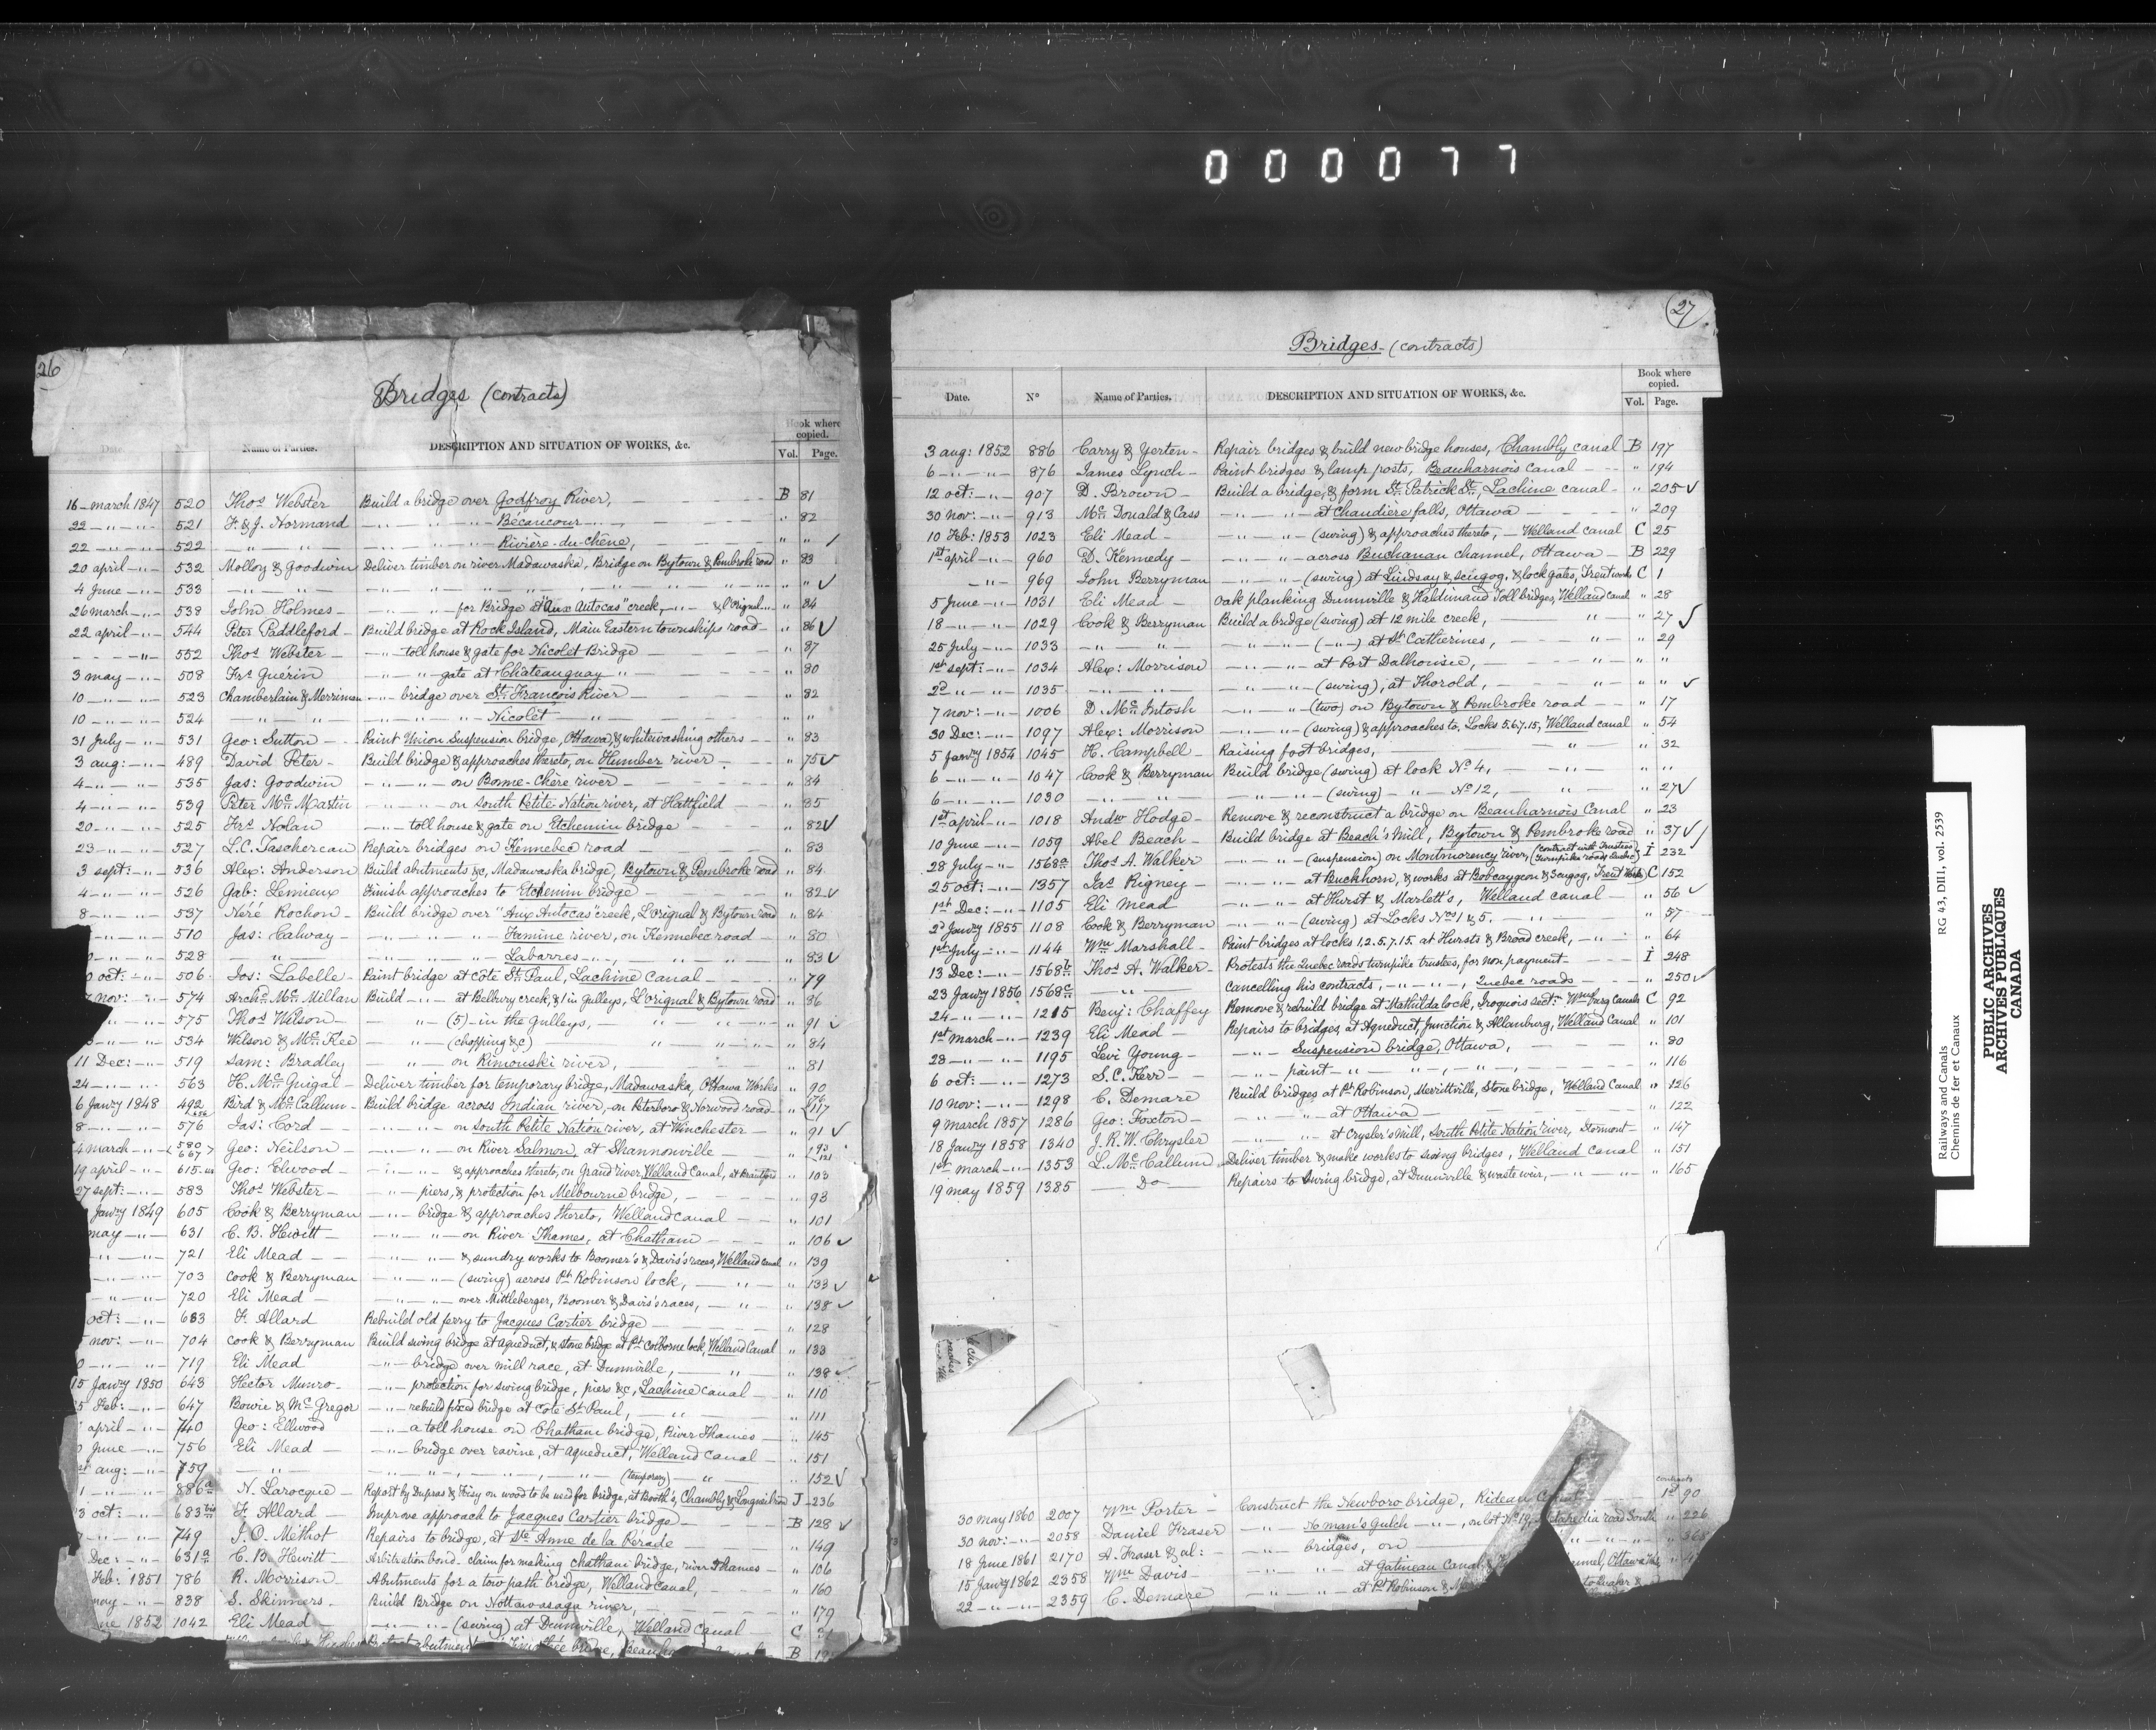 000077
26
Bridges (contracts)
Date. N° Name of Parties. DESCRIPTION AND SITUATION OF WORKS, &c. Book where copied.
Vol. Page.
16 – march 1847 520 Thos Webster Build a bridge over Godfroy River, B 81
22 – " – " – 521 F. & J. Normand – " – " – " – Bécancour – " – " 82
22 – " – " – 522 – " – " – " – " – Rivière-du-chêne, " "
20 april – " – 532 Molloy & Goodwin Deliver timber on river Madawaska, Bridge on Bytown & Pembroke road " 83
4 June – " – 533 – " – " – " – " – " " ✓
26 march – " – 538 John Holmes – – " – " – for Bridge at "Aux Autocas" creek, – " – & l'Orignal – " – " 84
22 april – " – 544 Peter Paddleford – Build bridge at Rock Island, Main Eastern townships road – " 86 ✓
– – – " – 552 Thos Webster – – " – toll house & gate for Nicolet Bridge – " 87
3 may – " – 508 Frs Guérin – " – " – gate at Châteauguay " " 80
10 – " – " – 523 Chamberlain & Merriman – " – bridge over St. Francois River – " 82
10 – " – " – 524 – " – " – " – " – Nicolet – " – " "
31 July – " – 531 Geo: Sutton – Paint Union Suspension bridge, Ottawa, & whitewashing others – " 83
3 aug: – " – 489 David Peter – Build bridge & approaches thereto, on Humber river – " 75 ✓
4 – " – " – 535 Jas: Goodwin – " – " – on Bonne-Chère river – " 84
4 – " – " – 539 Peter Mc Martin – " – " – on South Petite Nation river, at Hattfield " 85
20 – " – " – 525 Frs Nolan – " – toll house & gate on Etchemin bridge " 82 ✓
23 – " – " – 527 L.C. Taschereau Repair bridges on Kennebec road – " 83
3 sept: – " – 536 Alex: Anderson Build abutments &c, Madawaska bridge, Bytown & Pembroke road " 84
4 – " – " – 526 Gab: Lemieux Finish approaches to Etchemin bridge " 82 ✓
8 – " – " – 537 Néré Rochon – Build bridge over "Aux Autocas" creek, L'orignal & Bytown road " 84
– " – " – 510 Jas: Calway – – " – " – " – Famine river, on Kennebec road – " 80
– " – " – 528 – " – – " – " – " – Labarres – " –, " 83 ✓
oct: – " – 506 Jos: Labelle – Paint bridge at Cote St. Paul, Lachine Canal – " 79
nov: – " – 574 Archd Mc Millan Build – " – at Belbury creek, & in gulleys, L'orignal & Bytown road " 86
– " – " – 575 Thos Wilson – – " – (5) – in the gulleys, " " 91 ✓
– " – " – 534 Wilson & Mc Kee – " – (chopping &c) " " 84
11 Dec: – " – 519 Sam: Bradley – " – on Rimouski river, " 81
24 – " – " – 563 H. Mc Guigal – Deliver timber for temporary bridge, Madawaska, Ottawa Works " 90
6 Jawry 1848 492 Bird & Mc Callum – Build bridge across Indian river, on Peterboro & Norwood road – " 117
8 – " – " – 576 Jas: Cord – – " – " – on South Petite Nation river, at Winchester – " 91 ✓
4 march – " – 580 667 Geo: Neilson – – " – " – on River Salmon, at Shannonville –
19 april – " – 615 Geo: Elwood – – " – " & approaches thereto, on Grand river, Welland Canal, at Brantford " 103
27 sept: – " – 583 Thos Webster – – " – piers, & protection for Melbourne bridge, – " 93
Jawry 1849 605 Cook & Berryman – " – bridge & approaches thereto, Welland Canal – " 101
may – " – 631 C. B. Hewitt – – " – " – on River Thames, at Chatham " 106 ✓
– " – " – 721 Eli Mead – – " – " – & sundry works to Boomer's & Davis's races, Welland Canal " 139
– " – " – 703 Cook & Berryman – " – " – (swing) across Pt Robinson lock, – " – " 133 ✓
– " – " – 720 Eli Mead – – " – " – over Mittleberger, Boomer & Davis's races, – " – " 138 ✓
oct: – " – 683 F. Allard Rebuild old ferry to Jacques Cartier bridge – " 128
nov: – " – 704 Cook & Berryman Build swing bridge at aqueduct, & stone bridge at Pt Colborne lock, Welland Canal " 133
– " – " – 719 Eli Mead – " – bridge over mill race, at Dunnville, " " 138 ✓
15 Jawry 1850 643 Hector Munro – – " – protection for swing bridge, piers &c, Lachine Canal – " 110
5 Feb: – " – 647 Bowie & Mc Gregor – " – rebuild fixed bridge at Cote St Paul, – " – " 111
april – " – 740 Geo: Ellwood – " – a toll house on Chatham bridge, River Thames – " 145
June – " – 756 Eli Mead – – " – bridge over ravine, at Aqueduct, Welland Canal – " 151
aug: – " – 759 – " – – " – " – (temporary) – " – " 152 ✓
1 – " – 886a N. Larocque – Report by Dupras & Frisy on wood to be used for bridge, at Booth's, Chambly & Longueuil road J – 236
3 oct: – " – 683 bis F. Allard – Improve approach to Jacques Cartier bridge – B 128 ✓
– " – " – 749 J. O. Méthot Repairs to bridge, at Ste Anne de la Pérade – " 149
Dec: – " – 631a C. B. Hewitt – Arbitration bond. claim for making Chatham bridge, river Thames – " 106
Feb: 1851 786 R. Morrison – Abutments for a tow path bridge, Welland Canal, " 160
may – " – 838 S. Skinners – Build Bridge on Nottawasaga river, " 179
ne 1852 1042 Eli Mead – – " – " – (swing) at Dunnville, Welland Canal – C
B
27
Bridges – (contracts)
Date. N° Name of Parties. DESCRIPTION AND SITUATION OF WORKS, &c. Book where copied.
Vol. Page.
3 aug: 1852 886 Carry & Yerten – Repair bridges & build new bridge houses, Chambly canal B 197
6 – " – " – 876 James Lynch – Paint bridges & lamp posts, Beauharnois Canal – " 194
12 oct: – " – 907 D. Brown – Build a bridge, & form St. Patrick St., Lachine canal – " 205 ✓
30 nov: – " – 913 Mc Donald & Cass – " – " – at Chaudière falls, Ottawa – " 209
10 Feb: 1853 1023 Eli Mead – – " – " – (swing) & approaches thereto, – Welland canal C 25
1st april – " – 960 D. Kennedy – – " – " – across Buchanan channel, Ottawa – B 229
– " – 969 John Berryman – " – " – (swing) at Lindsay & Scugog, & lock gates, Trent works C 1
5 June – " – 1031 Eli Mead – Oak planking Dunnville & Haldimand Toll bridges, Welland canal " 28
18 – " – " – 1029 Cook & Berryman Build a bridge (swing) at 12 mile creek, – " – " 27 ✓
25 July – " – 1033 – " – " – – " – " – (– " –) at St Catherines, – " – " 29
1st sept: – " – 1034 Alex: Morrison – " – " – at Port Dalhousie, – " – " "
2d – " – " – 1035 – " – " – – " – " – (swing); at Thorold, – " – " " ✓
7 nov: – " – 1006 D. Mc Intosh – " – " – (two) on Bytown & Pembroke road – " 17
30 Dec: – " – 1097 Alex: Morrison – " – " – (swing) & approaches to, Locks 5.6.7.15, Welland canal " 54
5 Jawry 1854 1045 H. Campbell – Raising foot bridges, – " – " 32
6 – " – " – 1047 Cook & Berryman Build bridge (swing) at lock No. 4, – " – " "
6 – " – " – 1030 – " – " – – " – " – (swing) – " – No. 12, " " 27 ✓
1st april – " – 1018 Andw Hodge – Remove & reconstruct a bridge on Beauharnois Canal " 23
10 June – " – 1059 Abel Beach – Build bridge at Beach's Mill, Bytown & Pembroke road " 37 ✓
28 July – " – 1568a Thos A. Walker – " – " – (suspension) on Montmorency river, (contract with Trustees turnpike roads Quebec) I 232
25 oct: – " – 1357 Jas Rigney – – " – " – at Buckhorn, & works at Bobcaygeon & Scugog, Trent Works C 152
1st Dec: – " – 1105 Eli Mead – " – " – at Hurst & Marlett's, Welland canal – " 56 ✓
2d Jawry 1855 1108 Cook & Berryman – " – " – (swing) at Locks Nos 1 & 5. – " – " 57
1st July – " – 1144 Wm Marshall – Paint bridges at locks 1.2.5.7.15. at Hursts & Broad creek, – " – " 64
13 Dec: – " – 1568b Thos A. Walker – Protests the Quebec roads turnpike trustees, for non payment – I 248
23 Jawry 1856 1568c – " – Cancelling his contracts, – " – " –, Quebec roads – " 250 ✓
24 – " – " – 1215 Benj: Chaffey Remove & rebuild bridge at Mathilda lock, Iroquois sect: Wmsburg Canals C 92
1st march – " – 1239 Eli Mead – Repairs to bridges, at Aqueduct, Junction & Allanburg, Welland Canal " 101
28 – " – " – 1195 Levi Young – – " – " – Suspension bridge, Ottawa, " 80
6 oct: – " – 1273 S. C. Kerr – – " – paint – " – " –, – " –, " 116
10 nov: – " – 1298 C. Demare Build bridges at Pt Robinson, Merrittville, Stone bridge, Welland Canal " 126
9 march 1857 1286 Geo: Foxton – – " – " – at Ottawa – " 122
18 Jawry 1858 1340 J. R. W. Chrysler – " – " – at Crysler's Mill, South Petite Nation river, Stormont – " 147
1st march – " – 1353 L. Mc Callum Deliver timber & make works to swing bridges, Welland Canal " 151
19 may 1859 1385 – Do – Repairs to swing bridge, at Dunnville & waste weir, – " – " 165
contracts
30 may 1860 2007 Wm Porter – Construct the Newboro bridge, Rideau 1st 90
30 nov: – " – 2058 Daniel Fraser – " – No man's Gulch – " –, on lot No. road South " 226
18 June 1861 2170 A. Fraser & al: – " – bridges, on "
15 Jawry 1862 2358 Wm Davis – – " – " – at Gatineau Canal & Ottawa
22 – " – " – 2359 C. Demare – " – " – at Pt Robinson &
Railways and Canals RG 43, DIII, vol. 2539
Chemins de fer et Canaux
PUBLIC ARCHIVES
ARCHIVES PUBLIQUES
CANADA